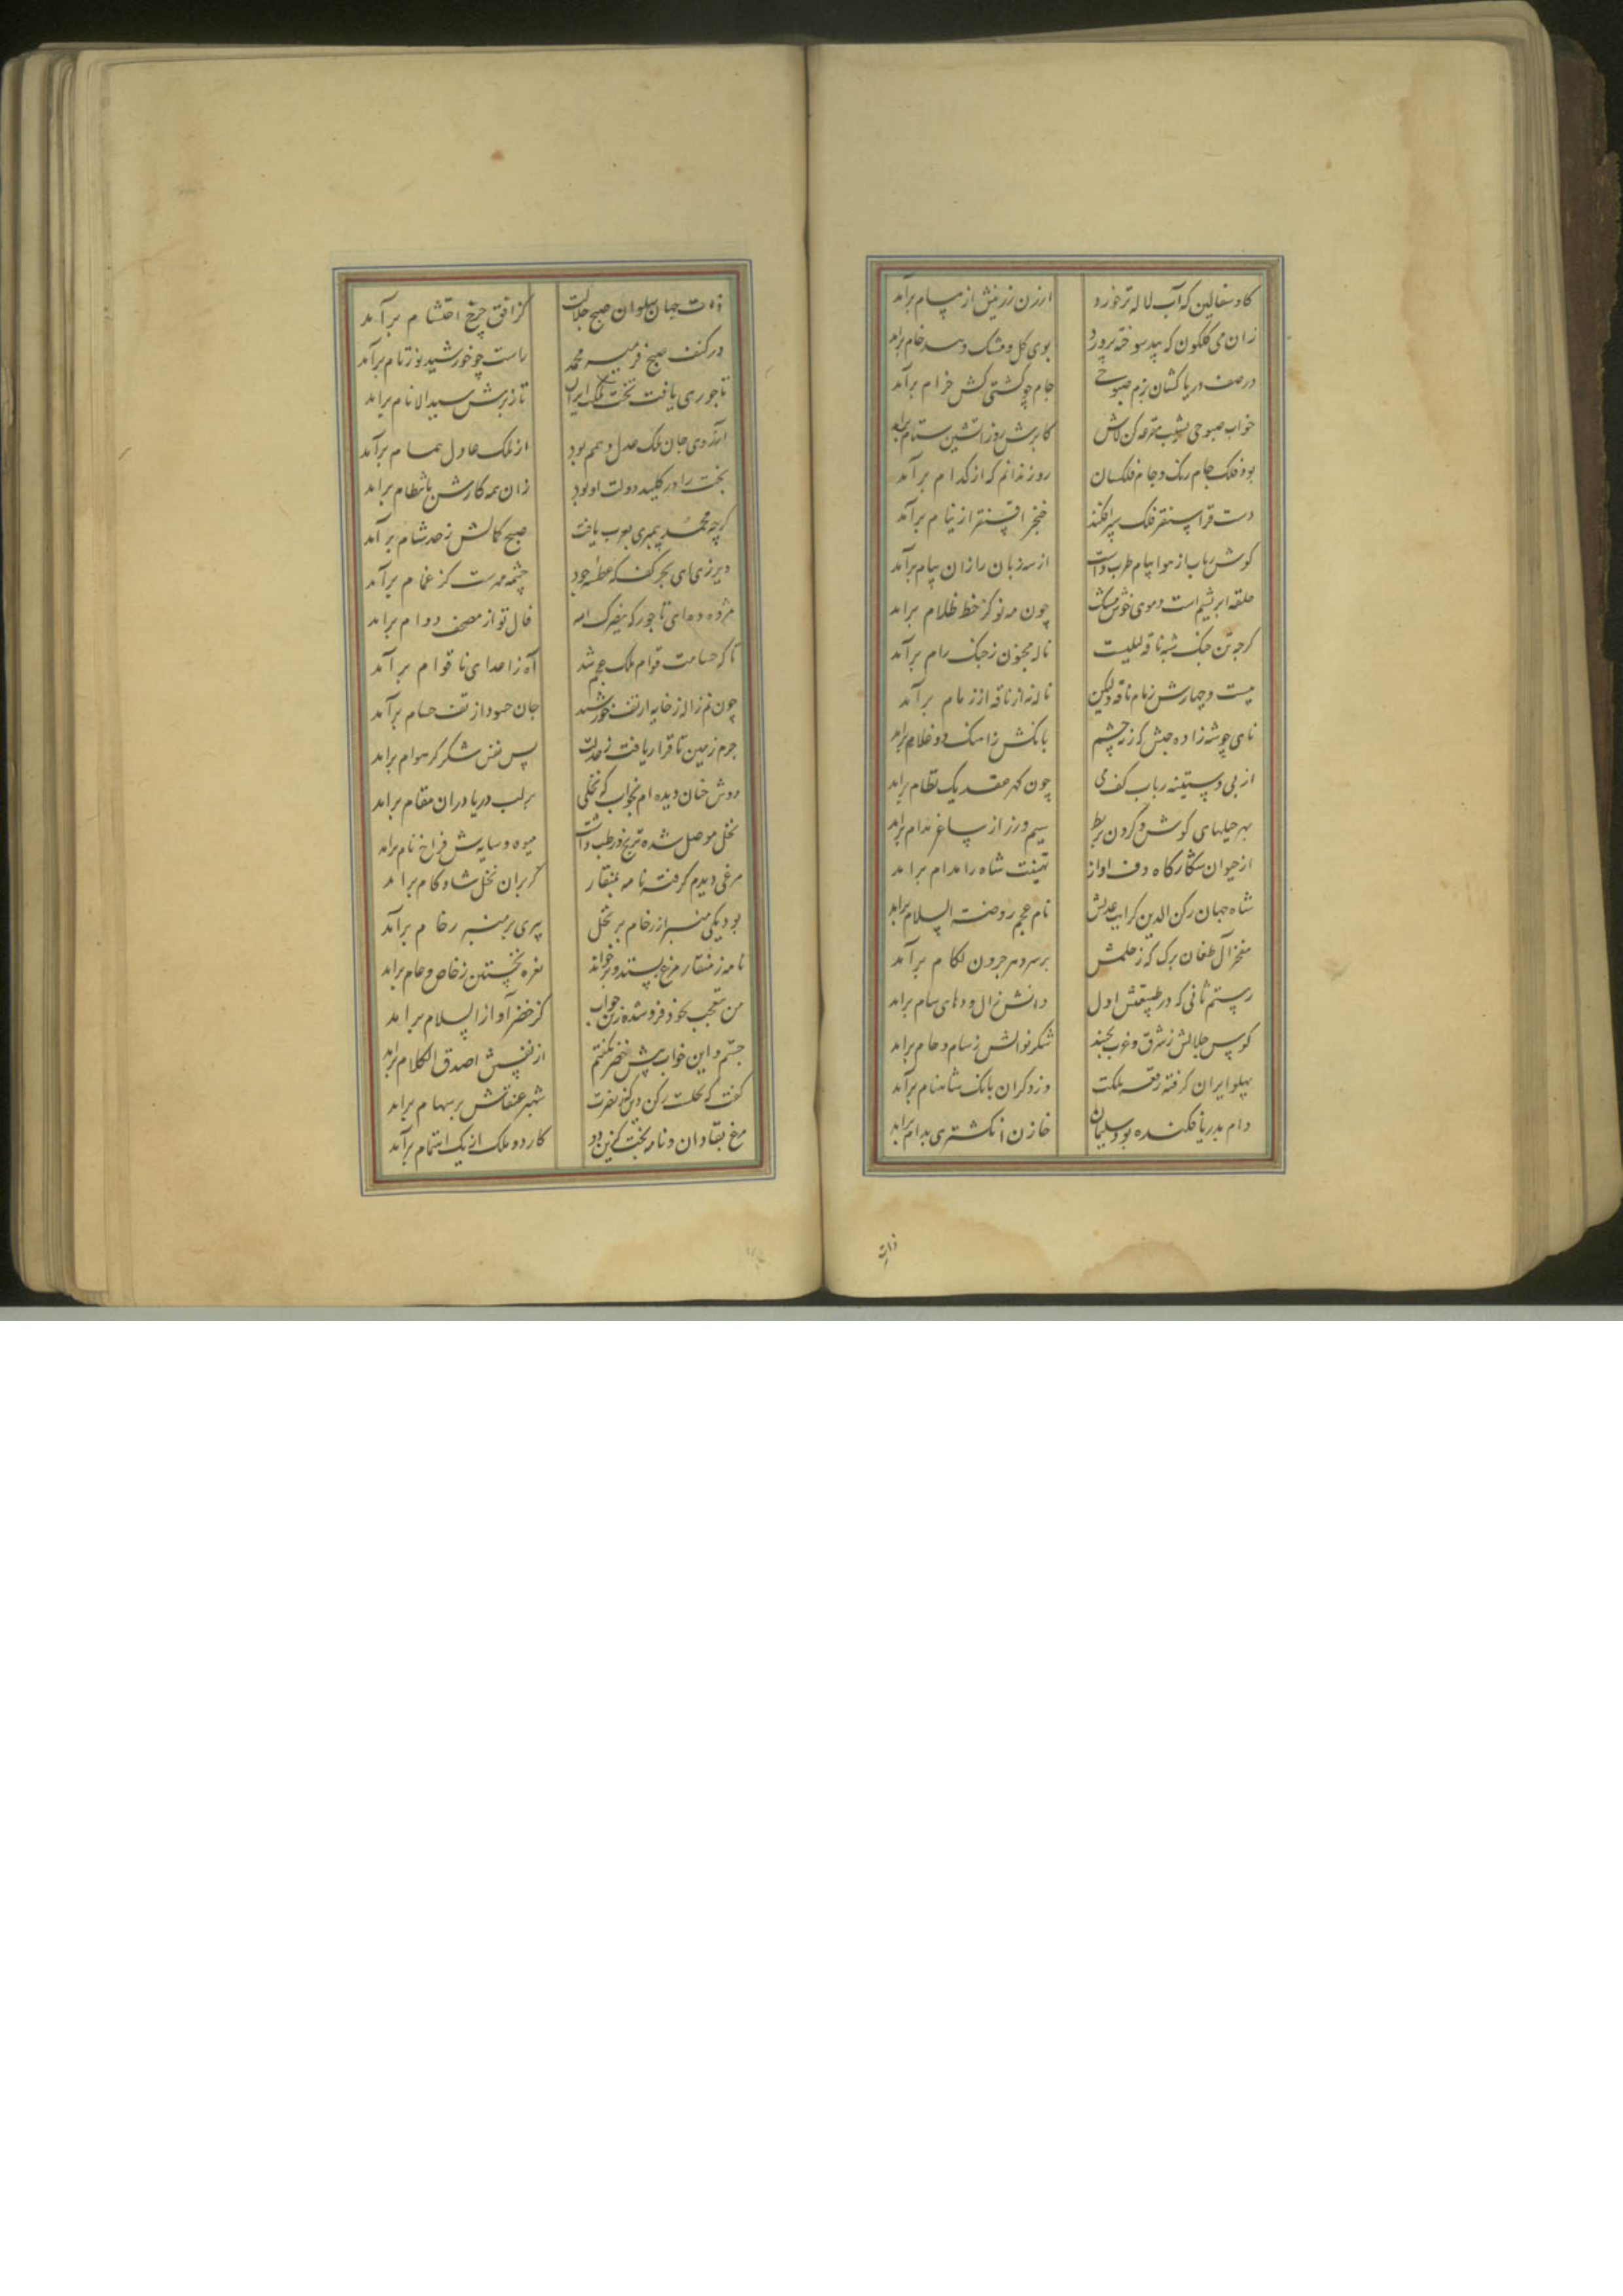 کاو سفالین که آب لاله تر خورد ارزن زرینش از مسام برآمد
زان می گلگون که بید سوخته پرورد بوی گل و مشک و بید خام برآمد
در صف دریا کشان بزم صبوحی جام چو کشتی کش خرام برآمد
خواب صبوحی کن کابرش روز آتشین ستام برآمد
بود فلک جام رنگ و جام فلکسان روز ندانم که از کدام برآمد
دست قراسنقر فلک سپر افکند خنجر اقسنقر از نیام برآمد
کوش رباب از هوا پیام طرب داشت از سه زبان راز آن پیام برآمد
حلقه ابریشم است و موی خوش چنگ چون مه نو کز خط ظلام برآمد
کرچه تن چنک شبه ناقه لیلیست ناله مجنون ز چنک رام برآمد
بیست و چهارش زمام ناقه و لیکن ناله نه از ناقه از زمام برآمد
نای چو شه زاده حبش که ز نه چشم بانکش از آهنک ده غلام برآمد
از پی دستینه رباب کف می چون گهر عقد یک نظام برآمد
بهر حلیهای کوش و کردن بربط سیم و زر از ساغر مدام برآمد
از حیوان شکارکاه دف اواز تهنیت شاه را مدام برآمد
شاه جهان رکن الدین کز آیت عدلش نام عجم روضة السلام برآمد
مفخر آل طغان یزک که ز حلمش بر سر دهر حرون لکام برآمد
رستم ثانی که در طبیعتش اول دانش زال و دهای سام برآمد
کوس جلالش ز شرق و غرب بجنبد شکر نوالش ز سام و حام برآمد
پهلو ایران کرفته رقعه ملکت وز دکران بانک شاهنام برآمد
دام بدریا فکنده بود سلیمان خازن انکشتری بدام برآمد
ذات
ذات جهان پهلوان صبح جلالت کز افق چرخ احتشام برآمد
در کنف صبح فر میر محمد راست چو خورشید نور تام برآمد
تاجوری یافت تخت ملک ایران تا ز برش سید الانام برآمد
آرزوی جان ملک عدل و همم بود از ملک عادل همام برآمد
بخت را در کلید دولت او بود زان همه کارش بانتظام برآمد
کرچه محمد پیمبری بعرب یافت صبح کمالش ز حد شام برآمد
دیر زی ای بحر کف که عطسه جود چشمه مهرست کز غمام برآمد
مژده ده ای تاجور که فال تو از مصحف دوام برآمد
تا که حسامت قوام ملک عجم شد آه ز اعدای نا قوام برآمد
چون نم ژاله ز خایه از تف خورشید جان حسود از تف حسام برآمد
جرم زمین تا قرار یافت ز عدلت بس نفس شکر کز هوام برآمد
دوش چنان دیده ام بخواب که نخلی بر لب دریا دران مقام برآمد
نخل موصل شده ترنج و رطب داشت میوه و سایه ش فراخ نام برآمد
مرغی دیدم کرفته نامه بمنقار کز بر آن نخل شاد کام برآمد
بود یکی منبر از رخام بر نخل پیری بر منبر رخام برآمد
نامه ز منقار مرغ بستد و بر خواند نعره تحسین ز خاص و عام برآمد
من متعجب بخود فرو شده زین خواب کز خضر آواز السلام برآمد
جستم و این خواب پیش خضر بگفتم از نفسش اصدق الکلام برآمد
گفت که نخلست رکن دین که نصرت شهپر عنقاش بر سهام برآمد
مرغ بقا دان و نامه بخت کزین دو کار دو ملک از یک اهتمام برآمد